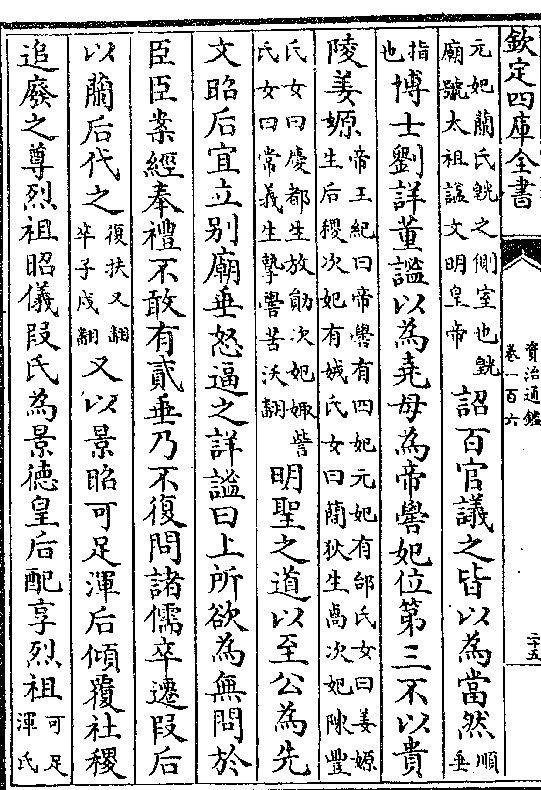 欽定四庫全書
資治通鑑
卷一百六
二十五
元妃蘭氏皝之側室也皝
廟號太祖諡文明皇帝
詔百官議之皆以為當然
順
垂
指
也
博士劉詳董謐以為堯母為帝嚳妃位第三不以貴
陵姜嫄
帝王紀曰帝嚳有四妃元妃有邰氏女曰姜嫄
生后稷次妃有娀氏女曰簡狄生卨次妃陳豐
氏女曰慶都生放勛次妃娵訾
氏女曰常義生摯嚳苦沃翻
明聖之道以至公為先
文昭后宜立别廟垂怒逼之詳謐曰上所欲為無問於
臣臣案經奉禮不敢有貳垂乃不復問諸儒卒遷段后
以蘭后代之
復扶又翻
卒子戍翻
又以景昭可足渾后傾覆社稷
追廢之尊烈祖昭儀段氏為景德皇后配享烈祖
可足
渾氏